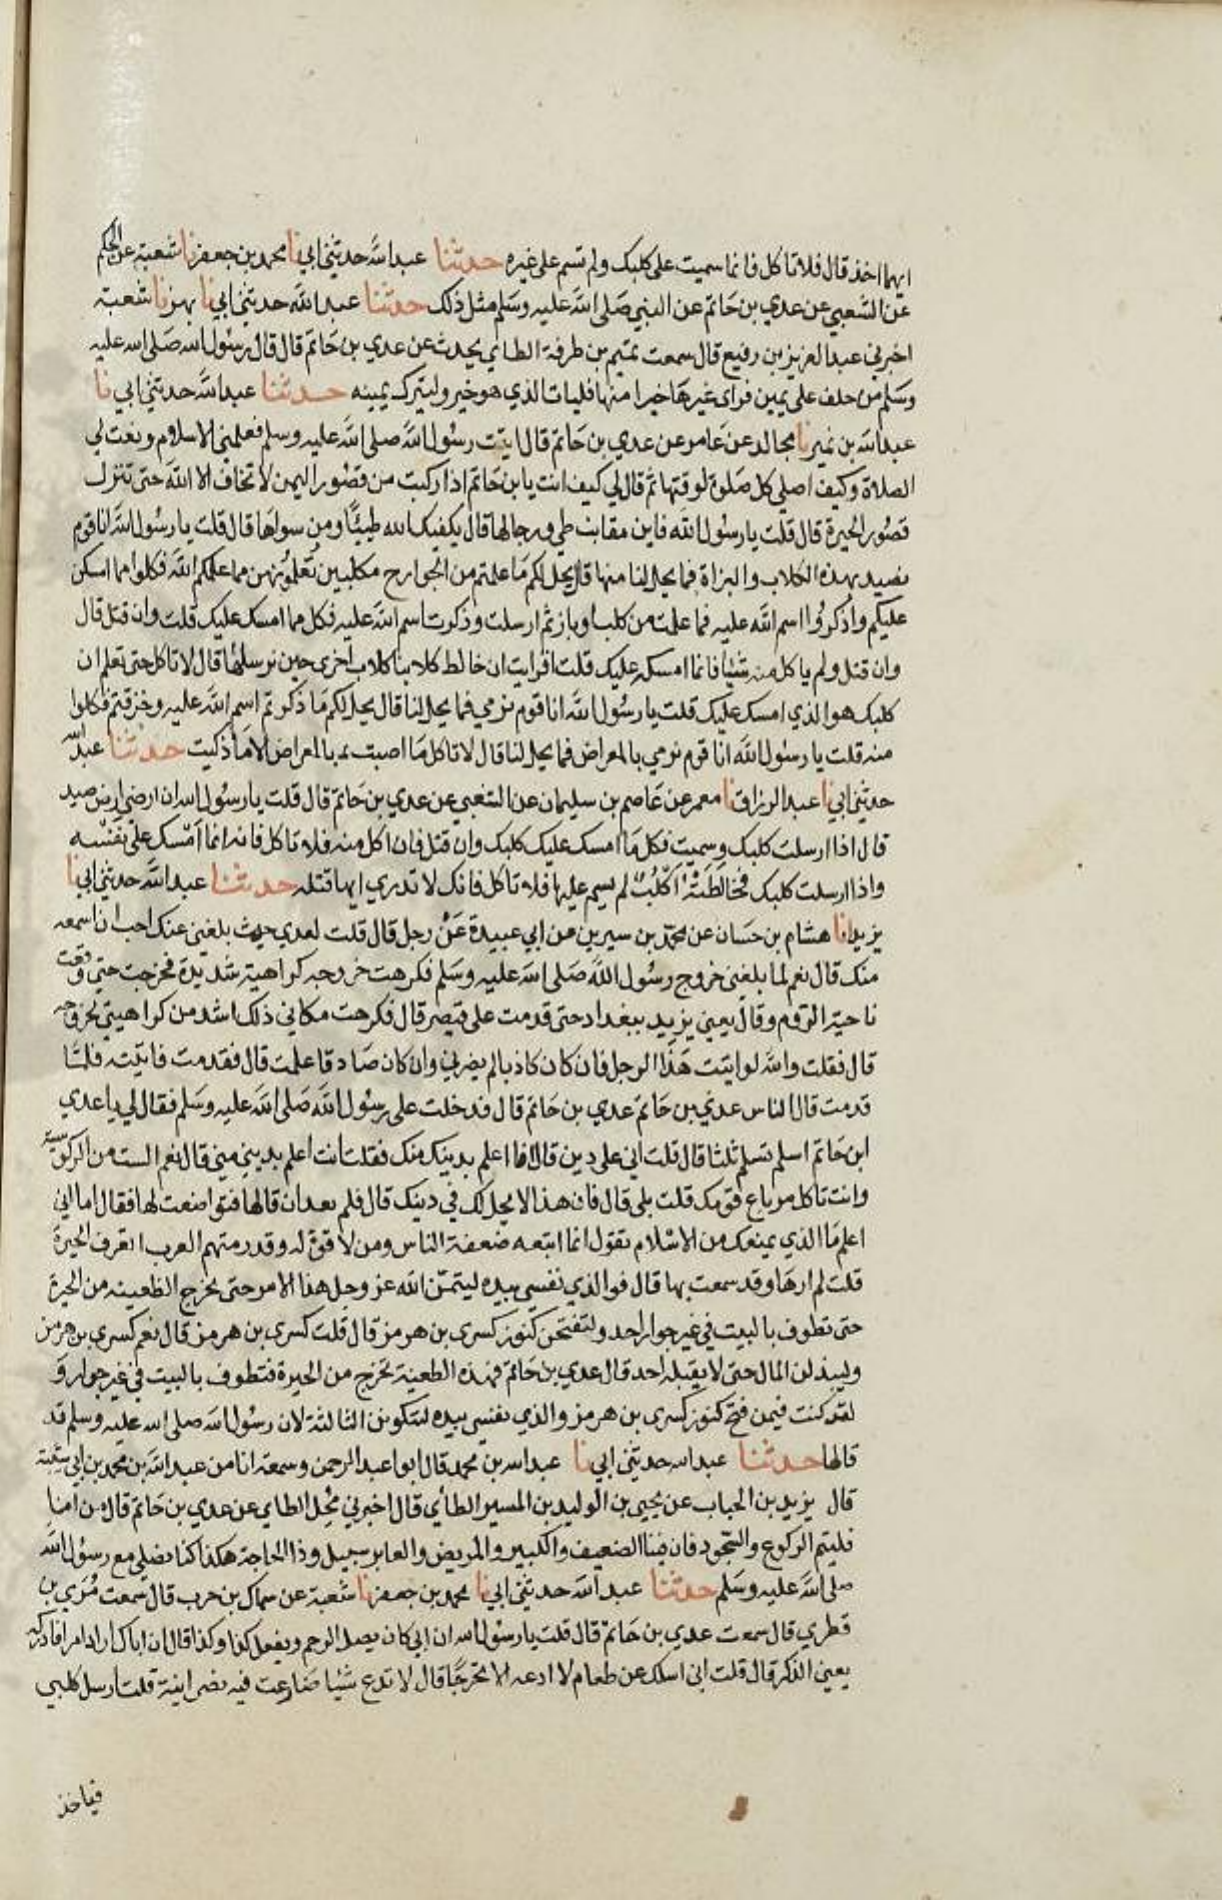 ايهما اخذ قال فلا تاكل فانما سميت على كلبك ولم تسم على غيره حدثنا عبد الله حدثني ابي نا محمد بن جعفر نا شعبة عن الحكم
عن الشعبي عن عدي بن حاتم عن النبي صلى الله عليه وسلم مثل ذلك حدثنا عبد الله حدثني ابي نا بهز نا شعبة
اخبرني عبد العزيز بن رفيع قال سمعت تميم بن طرفة الطاءي يحدث عن عدي بن حاتم قال قال رسول الله صلى الله عليه
وسلم من حلف على يمين فراى غيرها خيرا منها فليات الذي هو خير وليترك يمينه حدثنا عبد الله حدثني ابي نا
عبد الله بن نمير نا مجالد عن عامر عن عدي بن حاتم قال اتيت رسول الله صلى الله عليه وسلم فعلمني الاسلام ونعت لي
الصلاة وكيف اصلي كل صلوة لوقتها ثم قال لي كيف انت يا بن حاتم اذا ركبت من قصور اليمن لا تخاف الا الله حتى تنزل
قصور الحيرة قال قلت يا رسول الله فاين مقانب طي ورجالها قال يكفيك الله طيئا ومن سواها قال قلت يا رسول الله انا قوم
نصيد بهذه الكلاب والبزاة فما يحل لنا منها قال يحل لكم ما علمتم من الجوارح مكلبين تعلمونهن مما علمكم الله فكلوا مما امسكن
عليكم واذكروا اسم الله عليه فما علمت من كلب او باز ثم ارسلت وذكرت اسم الله عليه فكل مما امسك عليك قلت وان قتل قال
وان قتل ولم ياكل منه شيئا فانما امسكه عليك قلت افرايت ان خالط كلابنا كلاب اخرى حين نرسلها قال لا تاكل حتى تعلم ان
كلبك هو الذي امسك عليك قلت يا رسول الله انا قوم نرمي فما يحل لنا قال يحل لكم ما ذكرتم اسم الله عليه وخزقتم فكلوا
منه قلت يا رسول الله انا قوم نرمي بالمعراض فما يحل لنا قال لا تاكل ما اصبت بالمعراض الا ما ذكيت حدثنا عبد الله
حدثني ابي نا عبد الرزاق نا معمر عن عاصم بن سليمان عن الشعبي عن عدي بن حاتم قال قلت يا رسول الله ان ارضي ارض صيد
قال اذا ارسلت كلبك وسميت فكل ما امسك عليك كلبك وان قتل فان اكل منه فلا تاكل فانه انما امسك على نفسه
واذا ارسلت كلبك فخالطته اكلب لم يسم عليها فلا تاكل فانك لا تدري ايها قتله حدثنا عبد الله حدثني ابي نا
يزيد انا هشام بن حسان عن محمد بن سيرين عن ابي عبيدة عن رجل قال قلت لعدي حديث بلغني عنك احب ان اسمعه
منك قال نعم لما بلغني خروج رسول الله صلى الله عليه وسلم فكرهت خروجه كراهية شديدة فخرجت حتى وقعت
ناحية الروم وقال يعني يزيد ببغداد حتى قدمت على قيصر قال فكرهت مكاني ذلك اشد من كراهيتي لخروجه
قال فقلت والله لو اتيت هذا الرجل فان كان كاذبا لم يضرني وان كان صادقا علمت قال فقدمت فاتيته فلما
قدمت قال الناس عدي بن حاتم عدي بن حاتم قال فدخلت على رسول الله صلى الله عليه وسلم فقال لي يا عدي
ابن حاتم اسلم تسلم ثلثا قال قلت اني على دين قال انا اعلم بدينك منك فقلت انت اعلم بديني مني قال نعم الست من الركوسية
وانت تاكل مرباع قومك قلت بلى قال فان هذا لا يحل لك في دينك قال فلم يعد ان قالها فتواضعت لها فقال اما اني
اعلم ما الذي يمنعك من الاسلام تقول انما اتبعه ضعفة الناس ومن لا قوة له وقد رمتهم العرب اتعرف الحيرة
قلت لم ارها وقد سمعت بها قال فوالذي نفسي بيده ليتمن الله عز وجل هذا الامر حتى تخرج الظعينة من الحيرة
حتى تطوف بالبيت في غير جوار احد ولتفتحن كنوز كسرى بن هرمز قال قلت كسرى بن هرمز قال نعم كسرى بن هرمز
وليبذلن المال حتى لا يقبله احد قال عدي بن حاتم فهذه الظعينة تخرج من الحيرة فتطوف بالبيت في غير جوار و
لقد كنت فيمن فتح كنوز كسرى بن هرمز والذي نفسي بيده لتكونن الثالثة لان رسول الله صلى الله عليه وسلم قد
قالها حدثنا عبد الله حدثني ابي نا عبد الله بن محمد قال ابو عبد الرحمن وسمعته انا من عبد الله بن محمد بن ابي شيبة
قال يزيد بن الحباب عن يحيى بن الوليد بن المسير الطائي قال اخبرني محل الطاءي عن عدي بن حاتم قال من امنا
فليتم الركوع والسجود فان فينا الضعيف والكبير والمريض والعابر سبيل وذا الحاجة هكذا كنا نصلي مع رسول الله
صلى الله عليه وسلم حدثنا عبد الله حدثني ابي نا محمد بن جعفر نا شعبة عن سماك بن حرب قال سمعت مري بن
قطري قال سمعت عدي بن حاتم قال قلت يا رسول الله ان ابي كان يصل الرحم ويفعل كذا وكذا قال ان اباك اراد امرا فادركه
يعني الذكر قال قلت اني اسلك عن طعام لا ادعه الا تحرجا قال لا تدع شيئا ضارعت فيه نصرانية قلت ارسل كلبي
فياخذ